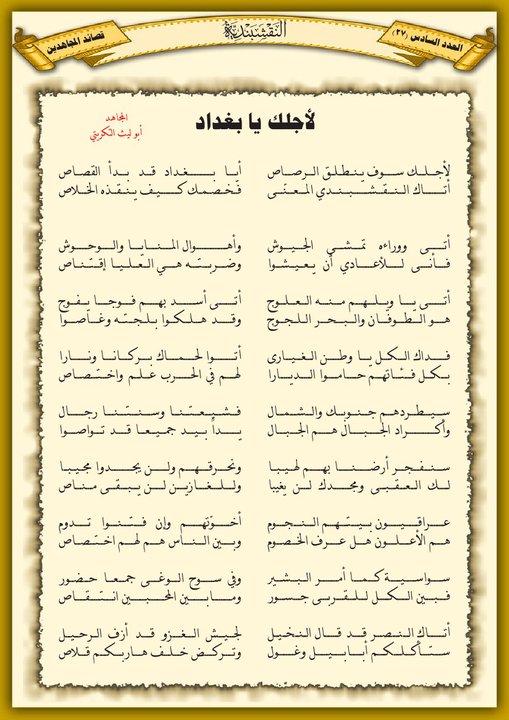 قصائد المجاهدين
النقشبندية
العدد السادس (٢٧)
لأجلك يا بغداد
المجاهد
أبو ليث التكريتي
لأجلك سوف ينطلق الرصاص أبا بغداد قد بدأ القصاص
أتاك النقشبندي المعنّى فخصمك كيف ينقذه الخلاص
أتى ووراءه تمشي الجيوش وأهوال المنايا والوحوش
فأنى للأعادي أن يعيشوا وضربته هي العليا إقتناص
أتى يا ويلهم منه العلوج أتى أسد بهم فوجا يفوج
هو الطوفان والبحر اللجوج وقد هلكوا بلجته وغاصوا
فداك الكل يا وطن الغيارى أتوا لحماك بركانا ونارا
بكل فئاتهم حاموا الديارا لهم في الحرب علم واختصاص
سيطردهم جنوبك والشمال فشيعتنا وسنتنا رجال
وأكراد الجبال هم الجبال يداً بيد جميعا قد تواصوا
سنفجر أرضنا بهم لهيبا ونحرقهم ولن يجدوا مجيبا
لك العقبى ومجدك لن يغيبا وللغازين لن يبقى مناص
عراقيون بيتهم النجوم أخوّتهم وإن فتنوا تدوم
هم الأعلون هل عرف الخصوم وبين الناس هم لهم اختصاص
سواسية كما أمر البشير وفي سوح الوغى جمعا حضور
فبين الكل للقربى جسور وما بين المحبين انتقاص
أتاك النصر قد قال النخيل لجيش الغزو قد أزف الرحيل
ستأكلكم أبابيل وغول وتركض خلف هاربكم قلاص